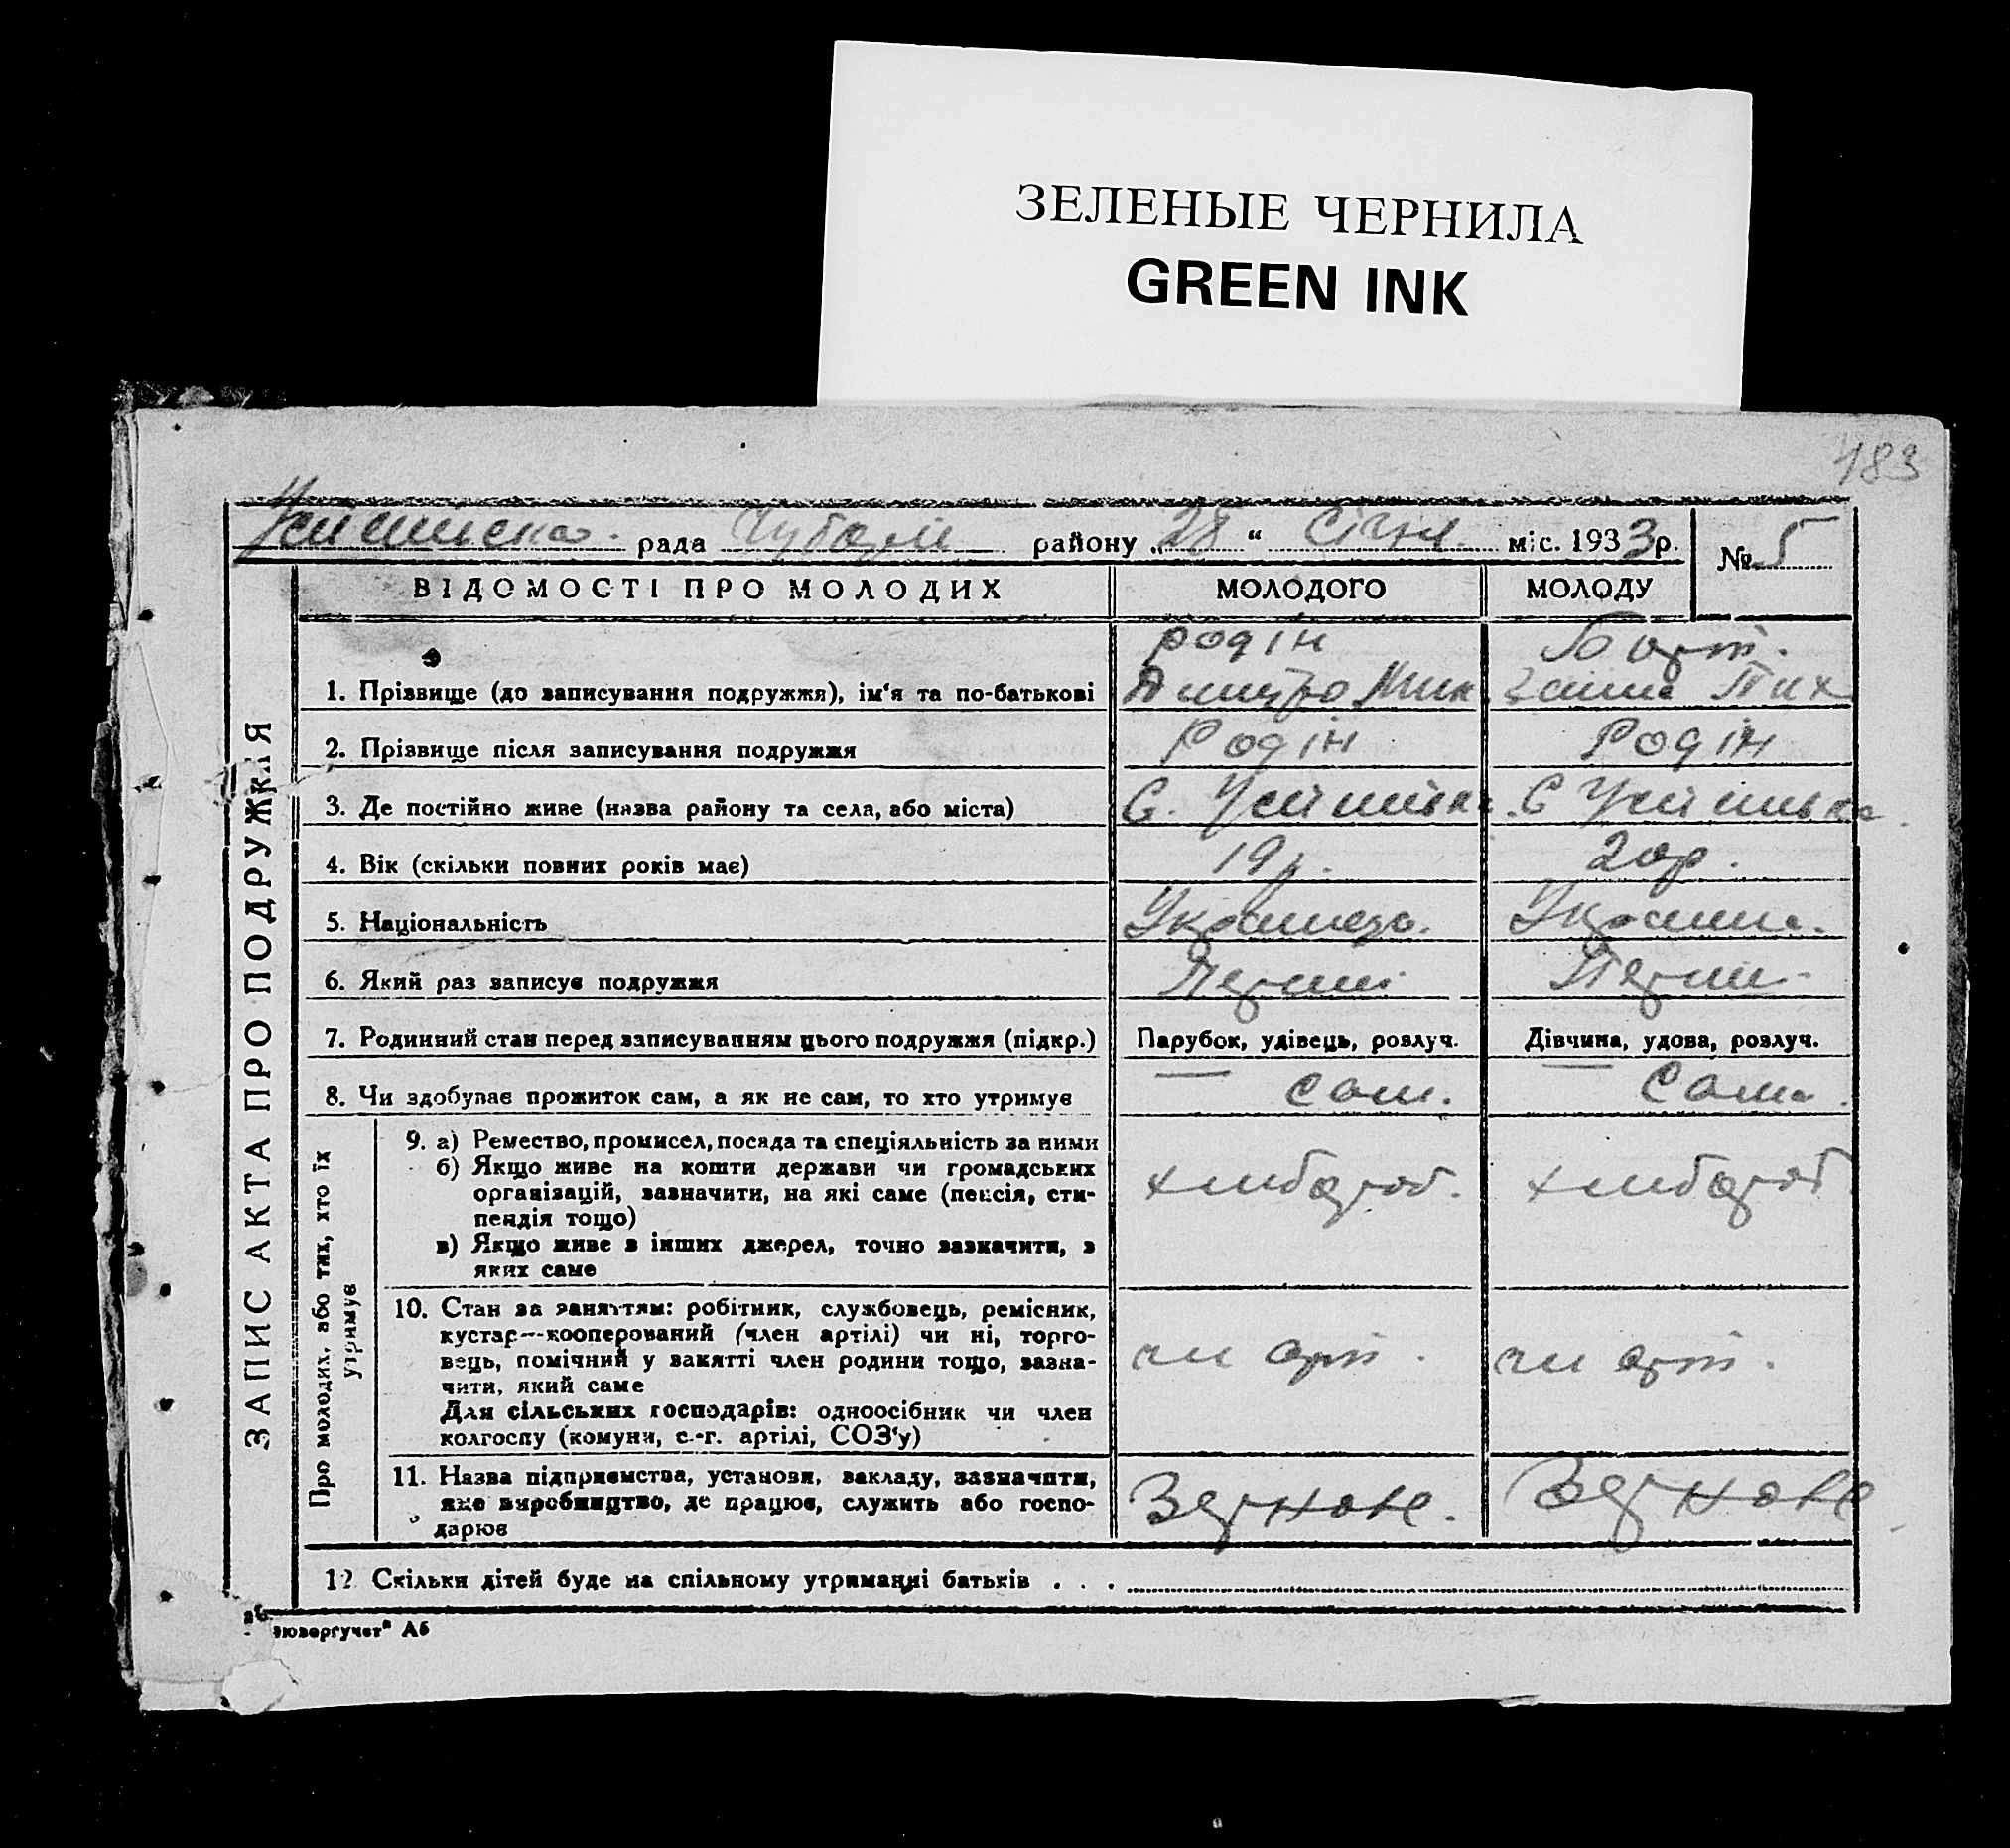 ЗЕЛЕНЫЕ ЧЕРНИЛА
GREEN INK
183
рада района району „28“ Січня міс. 1933р. № 5
ЗАПИС АКТА ПРО ПОДРУЖЖЯ
ВІДОМОСТІ ПРО МОЛОДИХ МОЛОДОГО МОЛОДУ
Родін
1. Прізвище (до записування подружжя), ім‘я та по-батькові Дмитро Мик.
2. Прізвище після записування подружжя Родін Родін
3. Де постійно живе (назва району та села, або міста) С. Усішивка С Усішивка
4. Вік (скільки повних років має) 19р. 20р.
5. Національність
6. Який раз записує подружжя Перший Перший
7. Родинний стан перед записуванням цього подружжя (підкр.) Парубок, удівець, розлуч. Дівчина, удова, розлуч.
8. Чи здобуває прожиток сам, а як не сам, то хто утримує сам. сама.
Про молодих, або тих, хто їх утримує
9. а) Ремество, промисел, посада та спеціяльність за ними
б) Якщо живе на кошти держави чи громадських
організацій, зазначити, на які саме (пенсія, сти-
пендія тощо) хлібороб. хлібороб
в) Якщо живе з інших джерел, точно зазначити, з
яких саме
10. Стан за заняттям: робітник, службовець, ремісник,
кустар—кооперований (член артілі) чи ні, торго-
вець, помічний у занятті член родини тощо, зазна- чл арт. чл арт.
чити, який саме
Для сільських господарів: одноосібник чи член
колгоспу (комуни, с.-г. артілі, СОЗ‘у)
11. Назва підприємства, установи, закладу, зазначити,
яке виробництво, де працює, служить або госпо- Зернове. Зернове
дарює
12 Скільки дітей буде на спільному утриманні батьків . . .